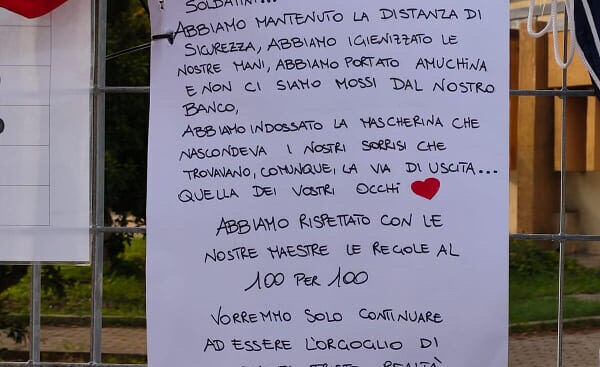 SOLDATINI...
ABBIAMO MANTENUTO LA DISTANZA DI
SICUREZZA, ABBIAMO IGIENIZZATO LE
NOSTRE MANI, ABBIAMO PORTATO AMUCHINA
E NON CI SIAMO MOSSI DAL NOSTRO
BANCO,
ABBIAMO INDOSSATO LA MASCHERINA CHE
NASCONDEVA I NOSTRI SORRISI CHE
TROVAVANO, COMUNQUE, LA VIA DI USCITA...
QUELLA DEI VOSTRI OCCHI
ABBIAMO RISPETTATO CON LE
NOSTRE MAESTRE LE REGOLE AL
100 PER 100
VORREMMO SOLO CONTINUARE
AD ESSERE L'ORGOGLIO DI
REALTÀ